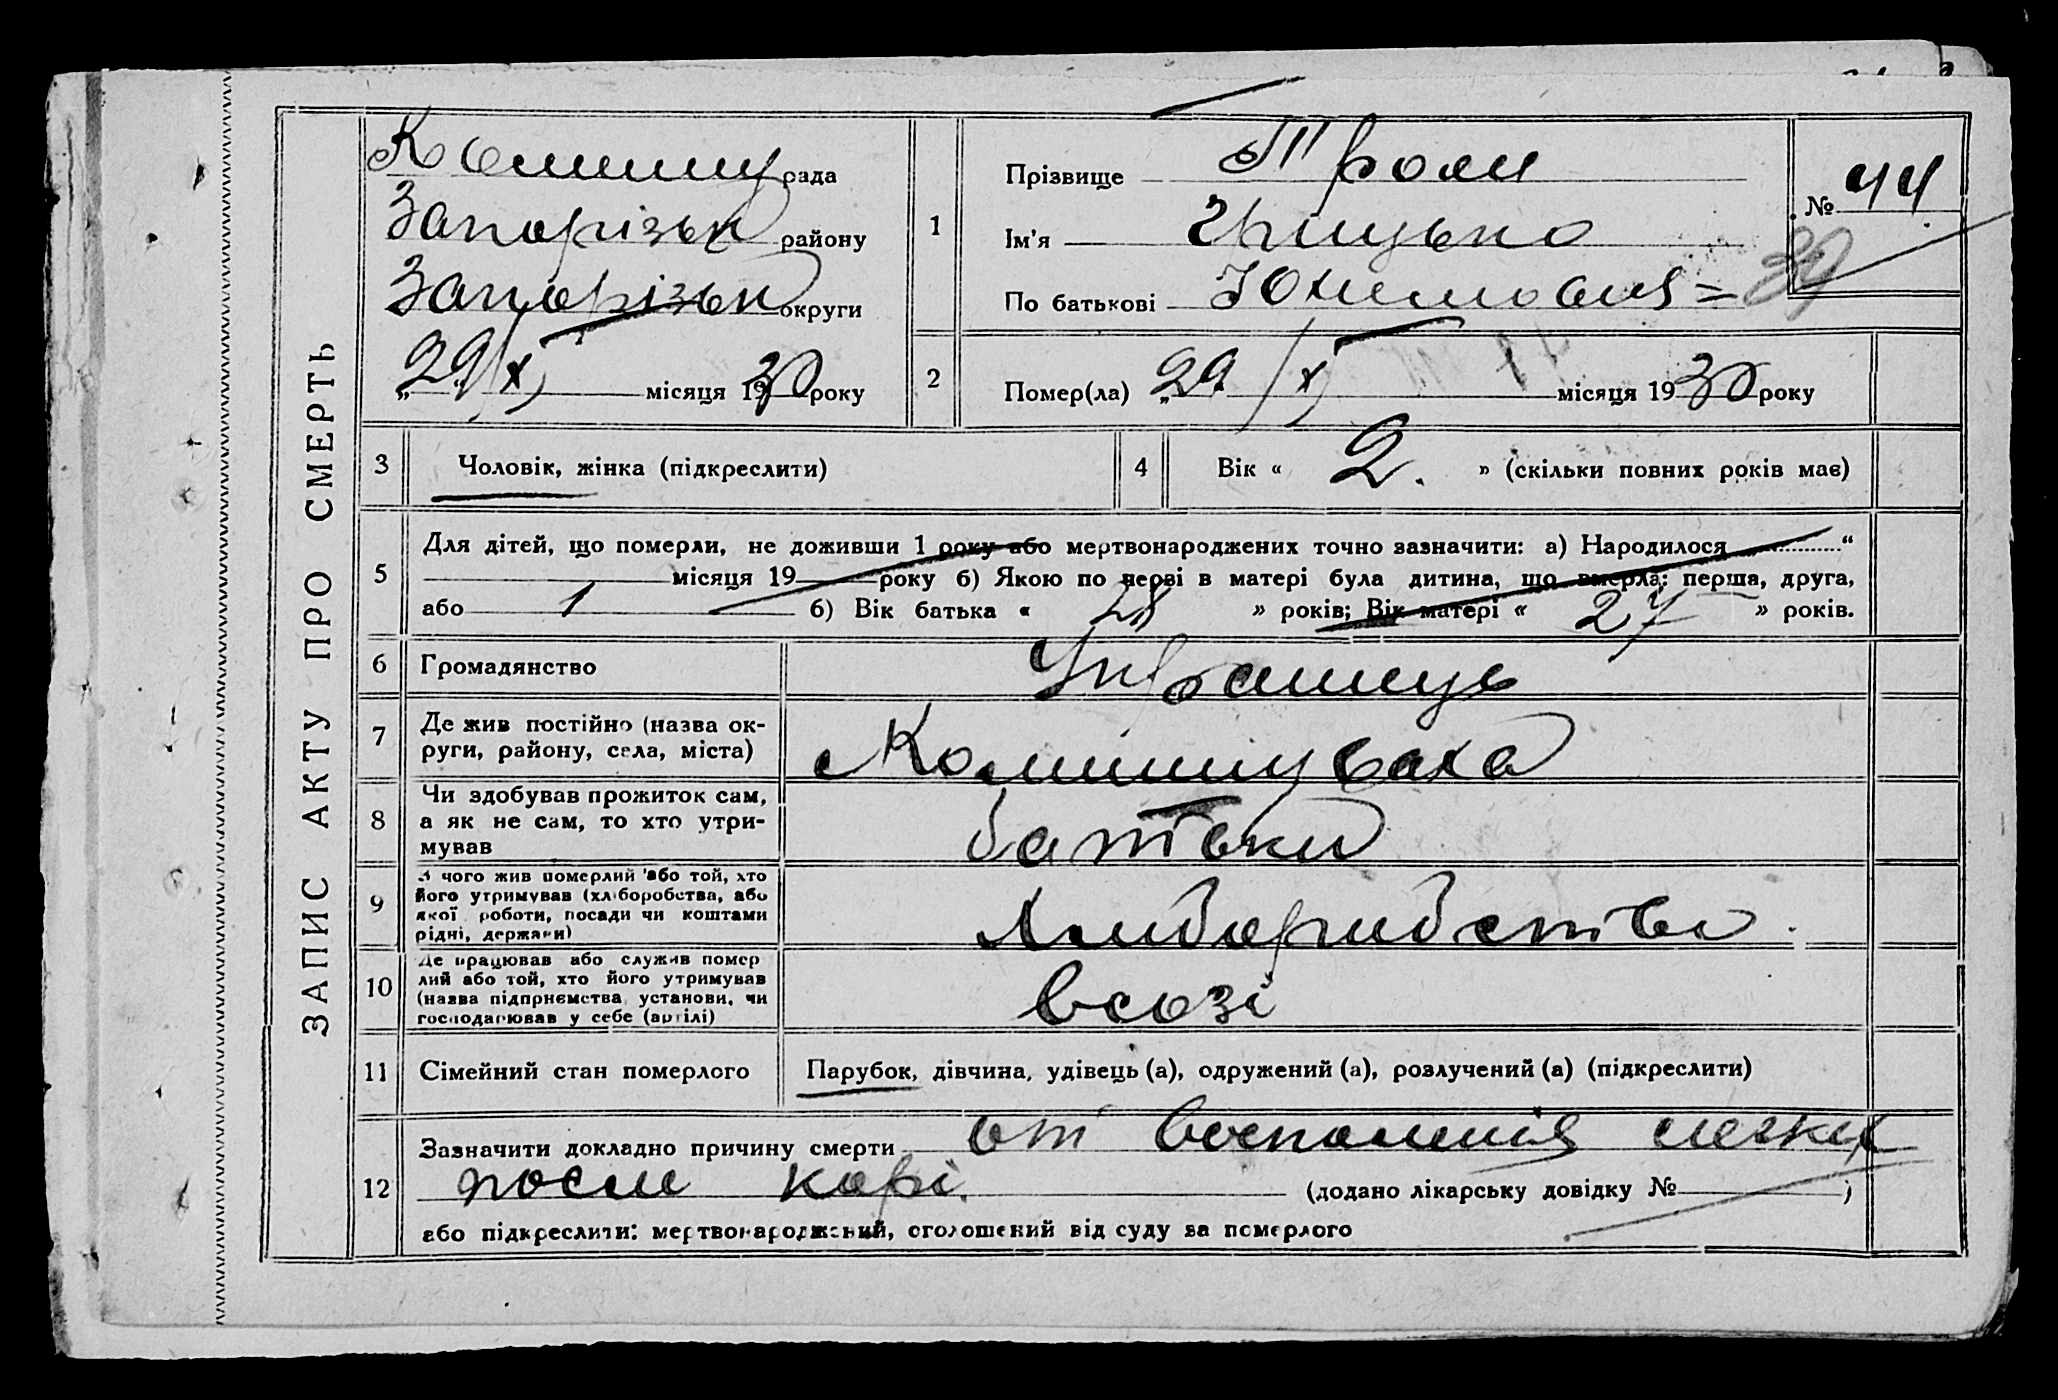 ЗАПИС АКТУ ПРО СМЕРТЬ
Комишу рада
Запорізьк району
Запорізьк округи
„29/XI місяця 1930 року
1
Прізвище Троян
Ім'я Грицько
По батькові Юхимович
№ 44
39
2
Помер(ла) „29/XI місяця 1930 року
3 Чоловік, жінка (підкреслити)
4 Вік « 2. » (скільки повних років має)
5
Для дітей, що померли, не доживши 1 року або мертвонароджених точно зазначити: а) Народилося “
місяця 19 року б) Якою по черві в матері була дитина, що вмерла: перша, друга,
або 1 б) Вік батька « 28 » років; Вік матері « 27 » років.
6 Громадянство Украинець
7 Де жив постійно (назва ок-
руги, району, села, міста) Комишуваха
8 Чи здобував прожиток сам,
а як не сам, то хто утри-
мував батьки
9 З чого жив померлий або той, хто
його утримував (хліборобства, або
якої роботи, посади чи коштами
рідні, держави) хлиборибство.
10 Де працював або служив помер
лий або той, хто його утримував
(назва підприємства, установи, чи
господарював у себе (артілі) всозі
11 Сімейний стан померлого Парубок, дівчина, удівець (а), одружений (а), розлучений (а) (підкреслити)
12
Зазначити докладно причину смерти от воспаления легких
после корі.
(додано лікарську довідку № )
або підкреслити: мертвонароджений, оголошений від суду за померлого